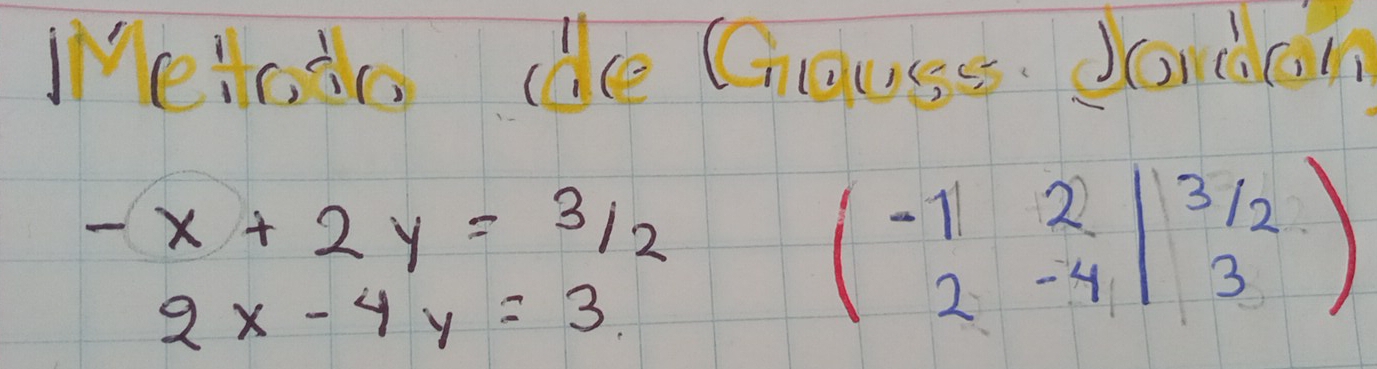 Metodo de Gauss. Jordán
-x + 2y = 3/2
2x - 4y = 3.
( -1 2 | 3/2 )
( 2 -4 | 3 )